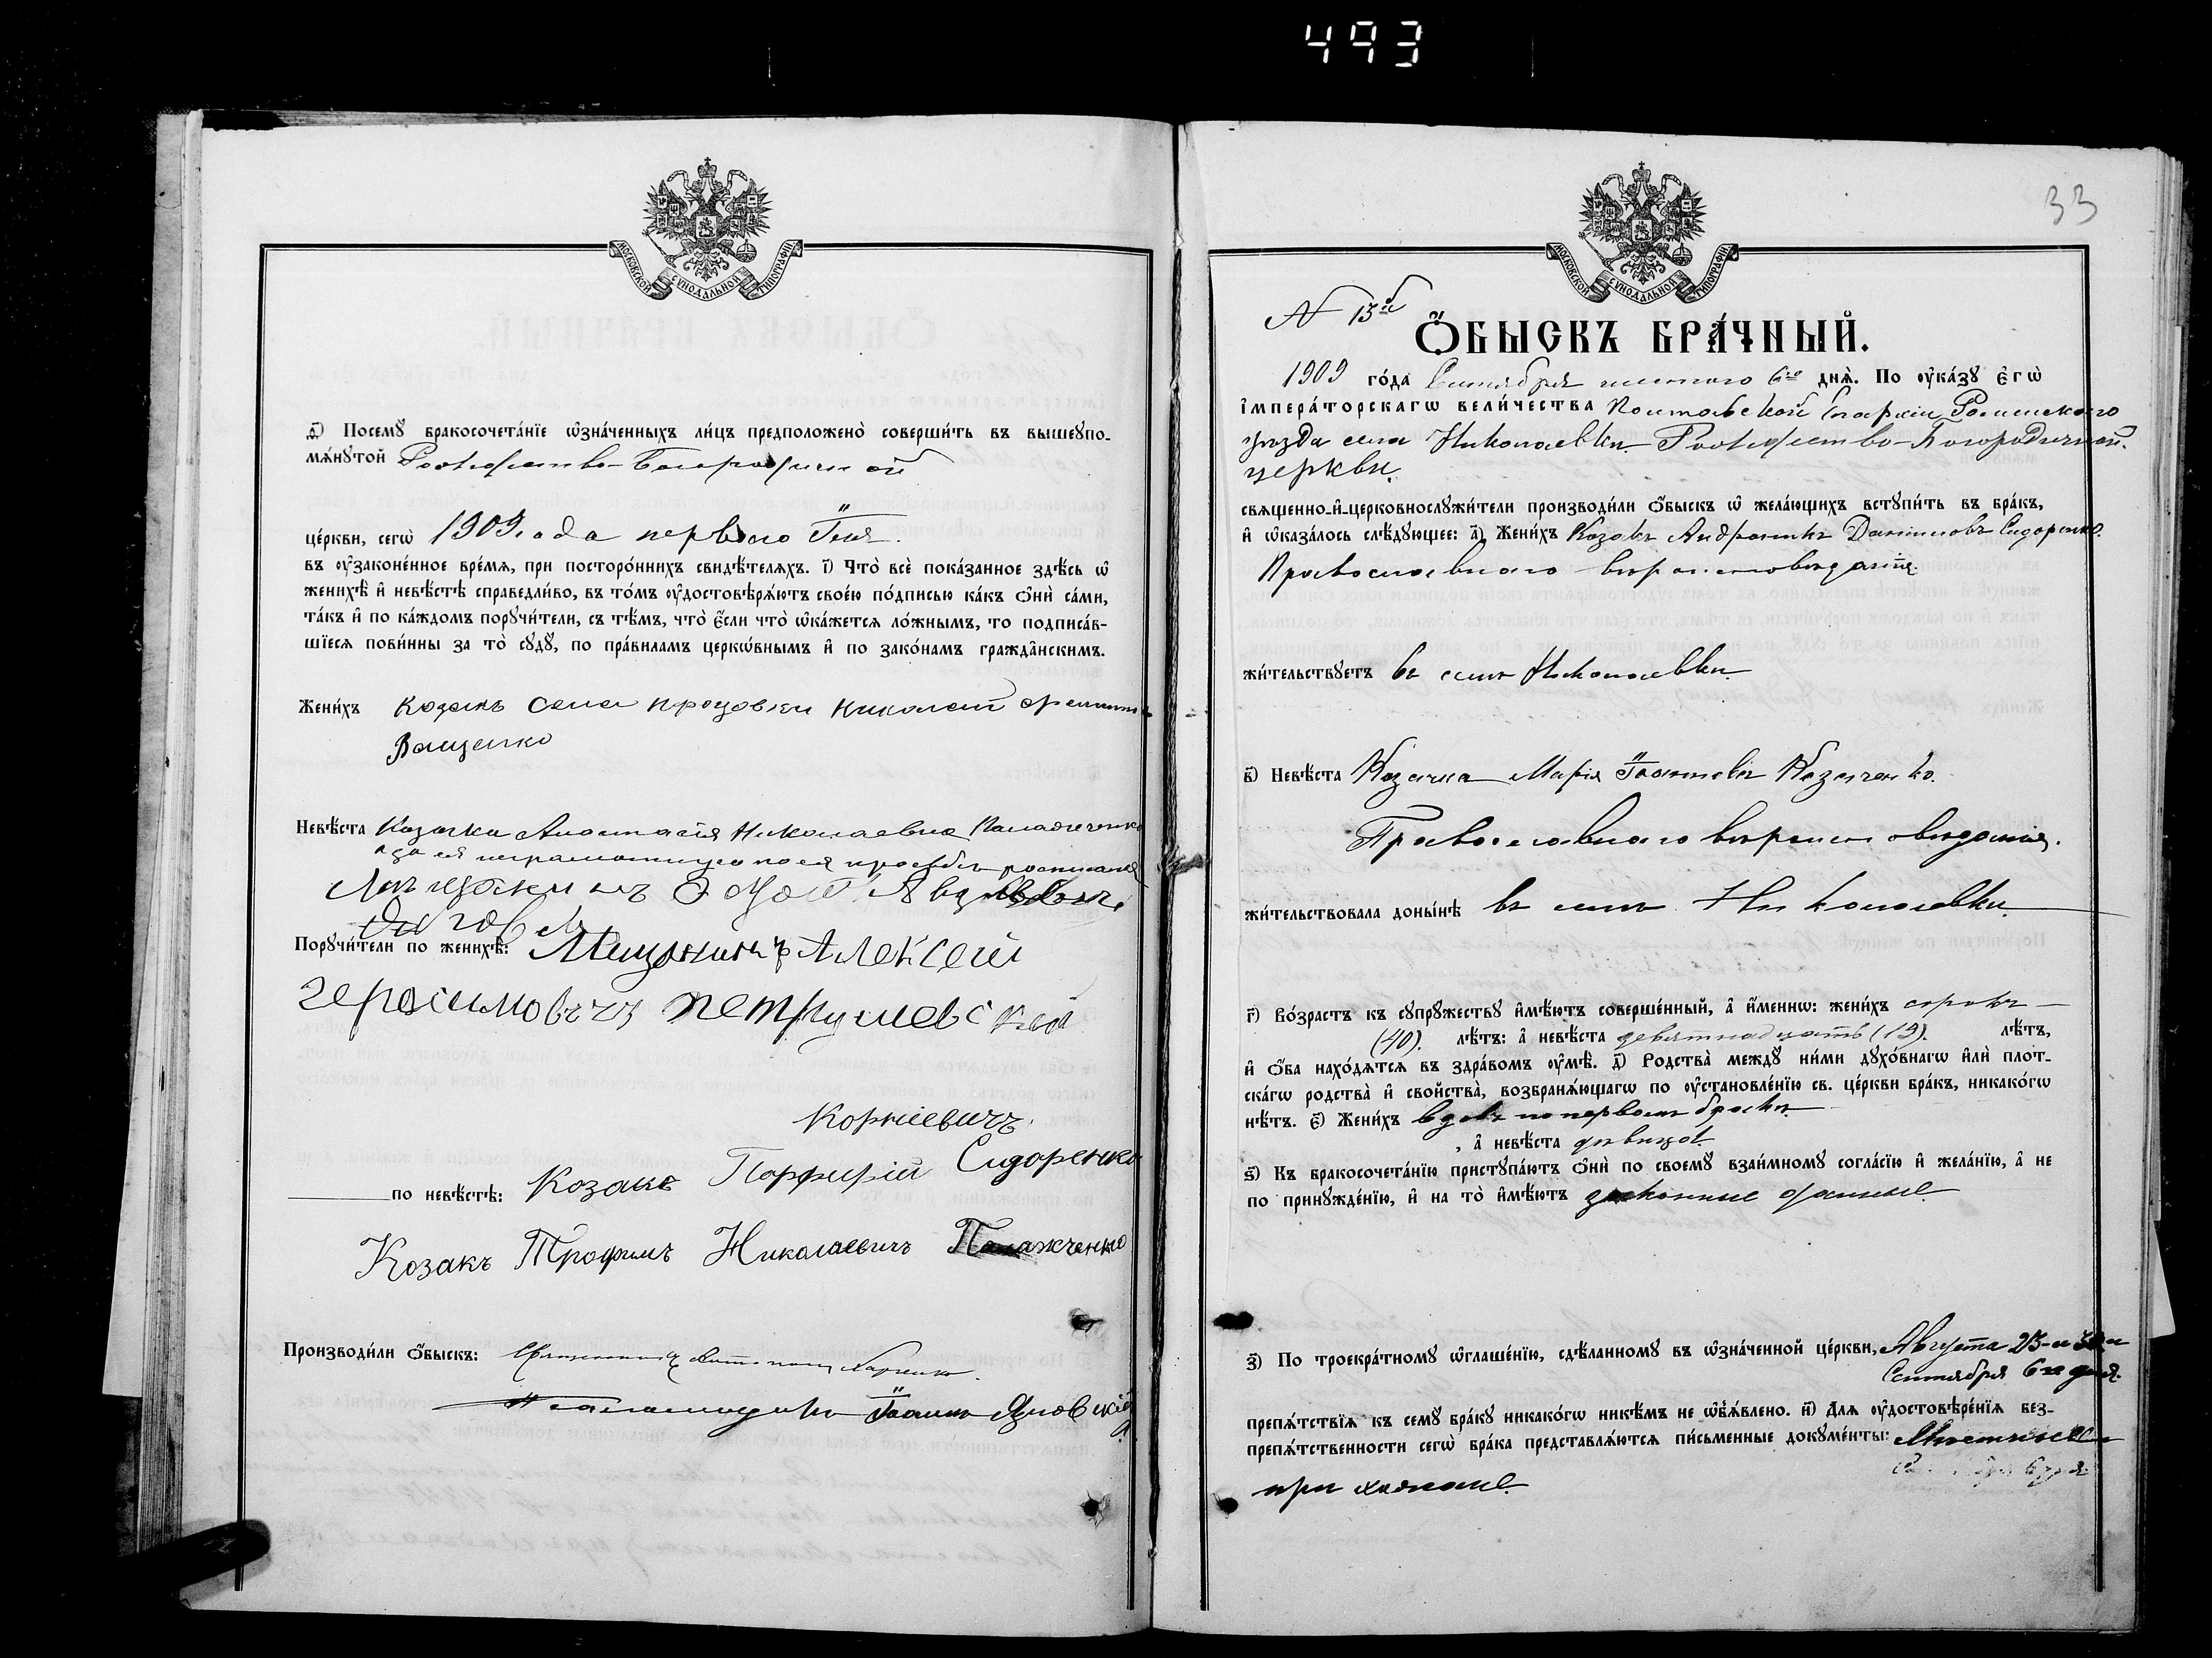 493
МОСКОВСКОЙ СУНОДАЛЬНОЙ ТИПОГРАФІИ
д҃) Посемꙋ̀ бракосочета́нїе ѡ҆зна́ченныхъ ли́цъ предположено̀ соверши́ть въ вышеꙋпо-
мѧ́нꙋтой Рождество-Богородичной
це́ркви, сегѡ̀ 1909 года первого
въ ᲂу҆зако́ненное вре́мѧ, при посторо́ннихъ свидѣ́телѧхъ. і҃) Что̀ всѐ пока́занное здѣ́сь ѡ҆
женихѣ̀ и҆ невѣ́стѣ справедли́во, въ то́мъ ᲂу҆достовѣрѧ́ютъ свое́ю по́дписью ка́къ ѻ҆нѝ са́ми,
та́къ и҆ по ка́ждомъ порꙋчи́тели, съ тѣ́мъ, что̀ є҆́сли что̀ ѡ҆ка́жетсѧ ло́жнымъ, то подписа́в-
шїесѧ пови́нны за то̀ сꙋдꙋ̀, по пра́виламъ церко́внымъ и҆ по зако́намъ гражда́нскимъ.
Жени́хъ козакъ села процовки николай
Ващенко
Невѣ́ста Козачка Анастасія Николаевна
а за ея неграмотную по ея просьбѣ росписался
Порꙋчи́тели по женихѣ̀: Мещанинъ Алексей
герасимовичъ петрушевской
Корніевичъ
по невѣ́стѣ: Козакъ Порфирій Сидоренко
Козакъ Трофимъ Николаевичъ Палажченко
Производи́ли ѻ҆́быскъ: Священникъ
Псаломщикъ Іоаннъ Язловскій
33
МОСКОВСКОЙ СУНОДАЛЬНОЙ ТИПОГРАФІИ
N 13й
Ѻ҆́БЫСКЪ БРА́ЧНЫЙ.
1909 го́да Сентября шестого 6го днѧ̀. По ᲂу҆ка́зꙋ є҆гѡ̀
і҆мпера́торскагѡ вели́чества Полтавской Епархіи Роменского
уѣзда села Николаевки Рождество-Богородичной
церкви.
свѧщенно-и҆-церковнослꙋжи́тели производи́ли ѻ҆́быскъ ѡ҆ жела́ющихъ встꙋпи́ть въ бра́къ,
и҆ ѡ҆каза́лось слѣ́дꙋющее: а҃) Жени́хъ Козакъ Андроникъ Даниловъ Сидоренко.
Православнаго вѣроисповѣданія
жи́тельствꙋетъ въ селѣ Николаевки
в҃) Невѣ́ста Козачка Марія Іоаннова Казаченко.
Православнаго вѣроисповѣданія.
жи́тельствовала доны́нѣ въ селѣ Николаевки
г҃) Во́зрастъ къ сꙋпрꙋ́жествꙋ и҆мѣ́ютъ соверше́нный, а҆ и҆́меннѡ: жени́хъ сорокъ
(40). лѣ́тъ: а҆ невѣ́ста девятнадцать (19). лѣ́тъ,
и҆ ѻ҆́ба нахо́дѧтсѧ въ здра́вомъ ᲂу҆мѣ̀. д҃) Родства̀ междꙋ ни́ми дꙋхо́внагѡ и҆лѝ плот-
ска́гѡ родства̀ и҆ свойства̀, возбранѧ́ющагѡ по ᲂу҆становле́нїю св. це́ркви бра́къ, никако́гѡ
нѣ́тъ. є҃) Жени́хъ вдовъ по первомъ бракѣ
, а҆ невѣ́ста дѣвица
ѕ҃) Къ бракосочета́нїю пристꙋпа́ютъ ѻ҆нѝ по своемꙋ̀ взаи́мномꙋ согла́сїю и҆ жела́нїю, а҆ не
по принꙋжде́нїю, и҆ на то̀ и҆мѣ́ютъ законные данные
з҃) По троекра́тномꙋ ѡ҆глаше́нїю, сдѣ́ланномꙋ въ ѡ҆зна́ченной це́ркви, Августа 23-и 30-и
Сентября 6го дня.
препѧ́тствїѧ къ семꙋ̀ бра́кꙋ никако́гѡ никѣ́мъ не ѡ҆б̾ѧ́влено. и҃) Длѧ ᲂу҆достовѣре́нїѧ без-
препѧ́тственности сегѡ̀ бра́ка представлѧ́ютсѧ пи́сьменные докꙋме́нты: Мѣстные
прихожане